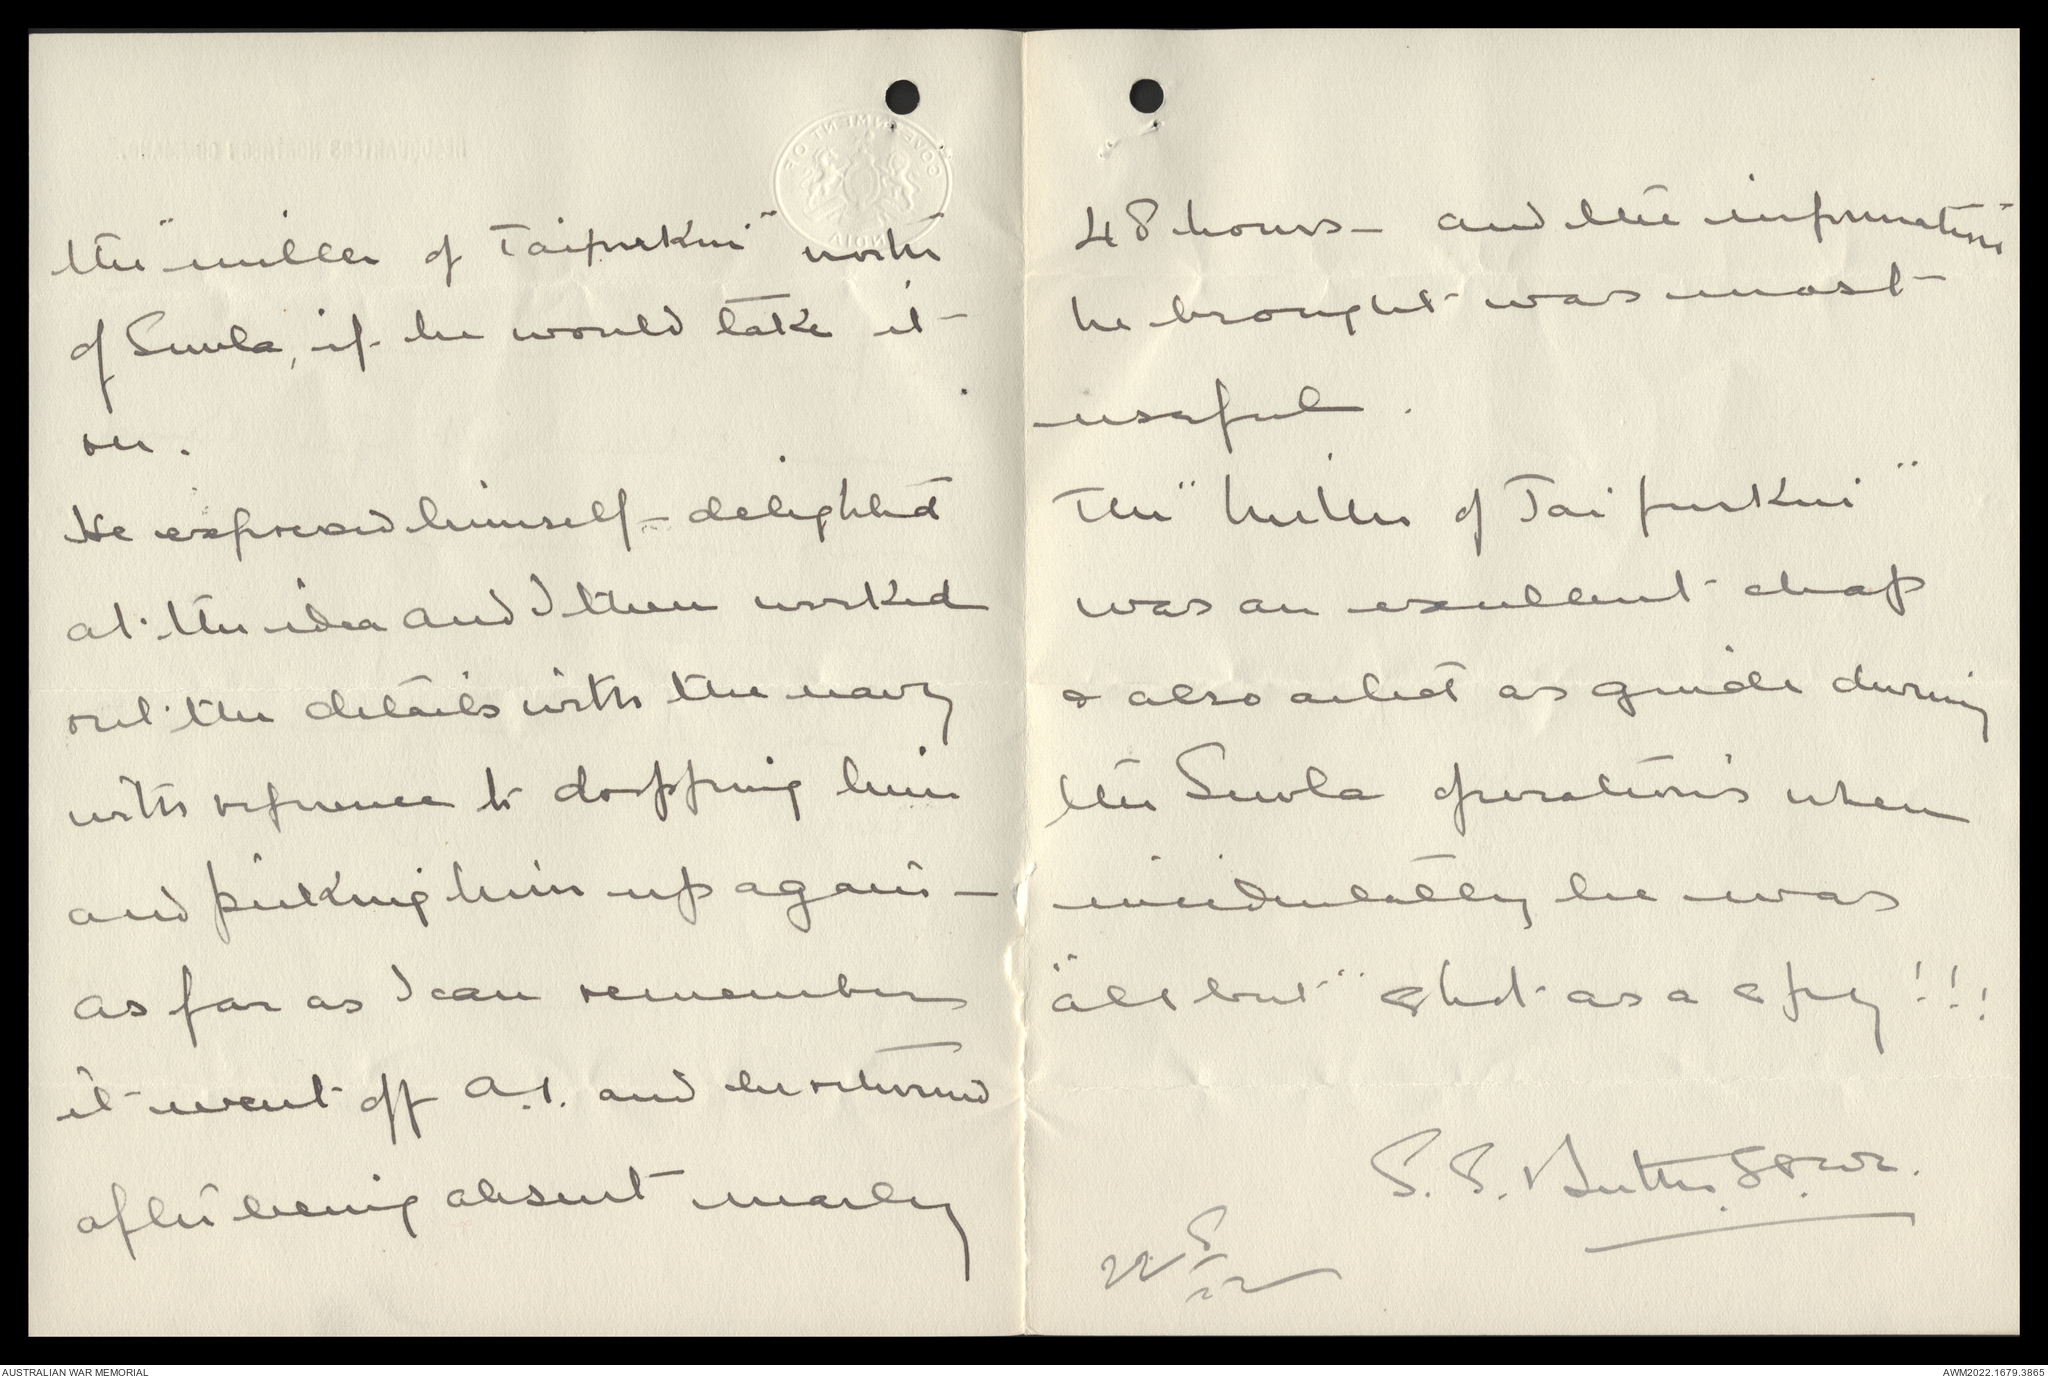 the "miller of Taifurkui" north
of Suvla, if he would take it
on.
He expressed himself delighted
at the idea and I then worked
out the details with the navy
with reference to dropping him
and picking him up again —
as far as I can remember
it went off A.1. and he returned
after being absent nearly
48 hours — and the information
he brought was most
useful.
The "Miller of Taifurkui"
was an excellent chap
& also acted as guide during
the Suvla operations when
incidentally he was
"all but" shot as a spy!!!
S. S. Butler
22/8/22
GOVERNMENT OF INDIA
HEADQUARTERS NORTHERN COMMAND.
AUSTRALIAN WAR MEMORIAL
AWM2022.1679.3865